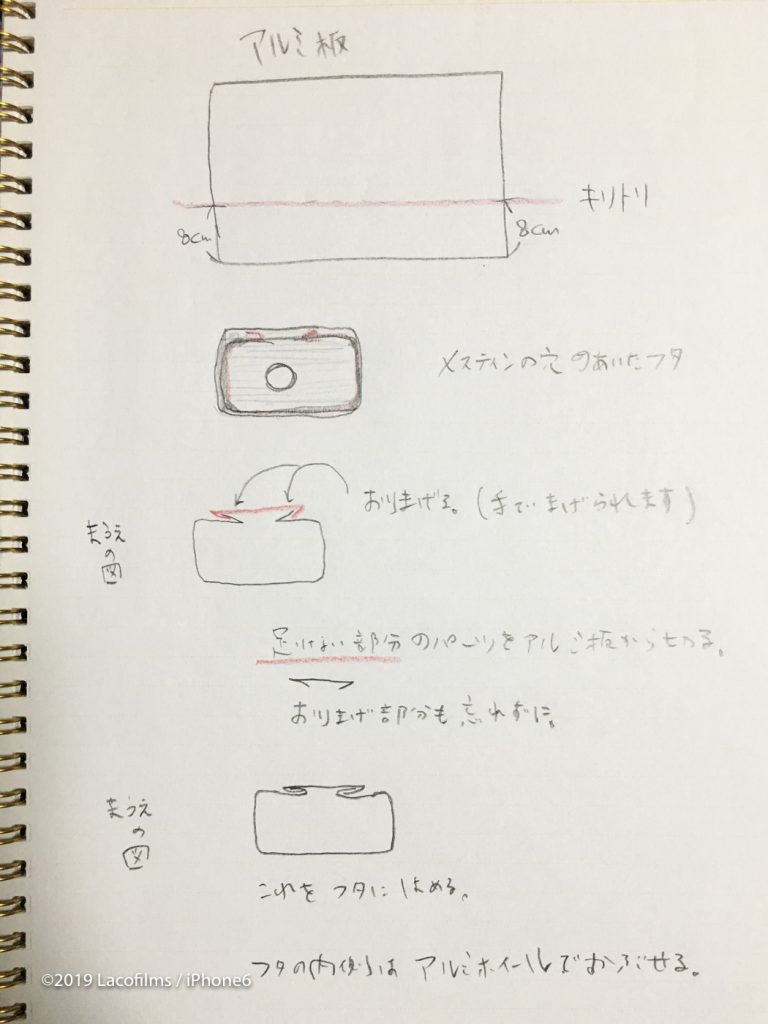 アルミ板
キリトリ
8cm 8cm
メスティンの穴のあいたフタ
おりまげる。(手でまげられます)
まうえの図
足りない部分のパーツをアルミ板から切る。
おりまげ部分も忘れずに。
まうえの図
これをフタにはめる。
フタの内側はアルミホイールでかぶせる。
©2019 Lacofilms / iPhone6